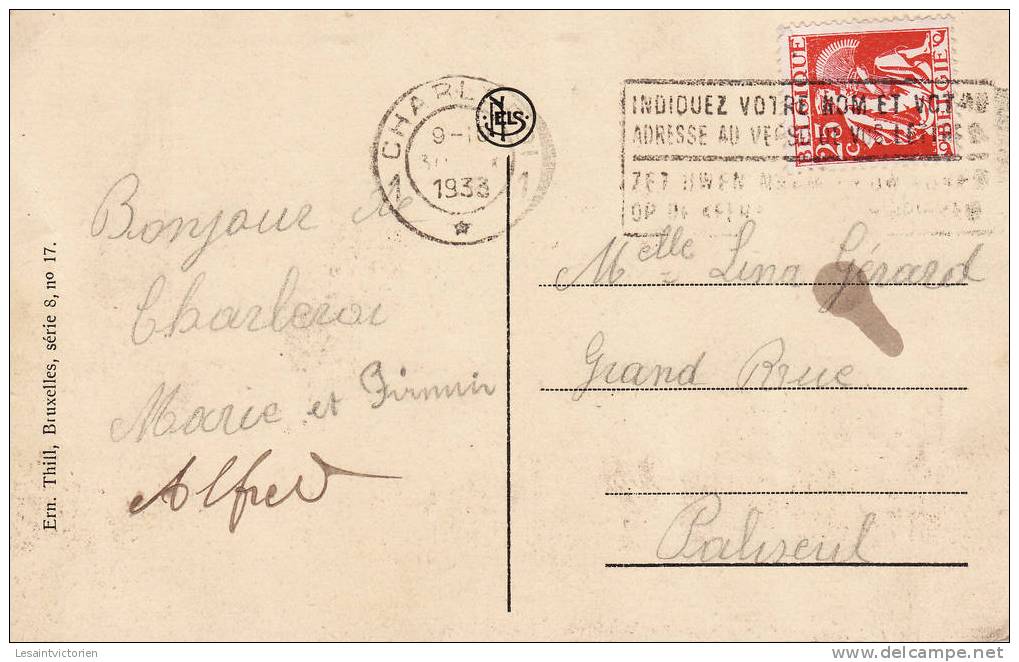 CHARL
NELS
9-10
1933
1 1
BELGIQUE
BELGIE
25 c
INDIQUEZ VOTRE NOM ET VOT
ADRESSE AU VERSO DE VOS LETTRES
ZET UWEN NAAM
OP DE KEER
Bonjour de
Charleroi
Marie et Firmin
Alfred
Melle Lina Gérard
Grand Rue
Paliseul
Ern. Thill, Bruxelles, série 8, no 17.
Lesaintvictorien
delcampe.net